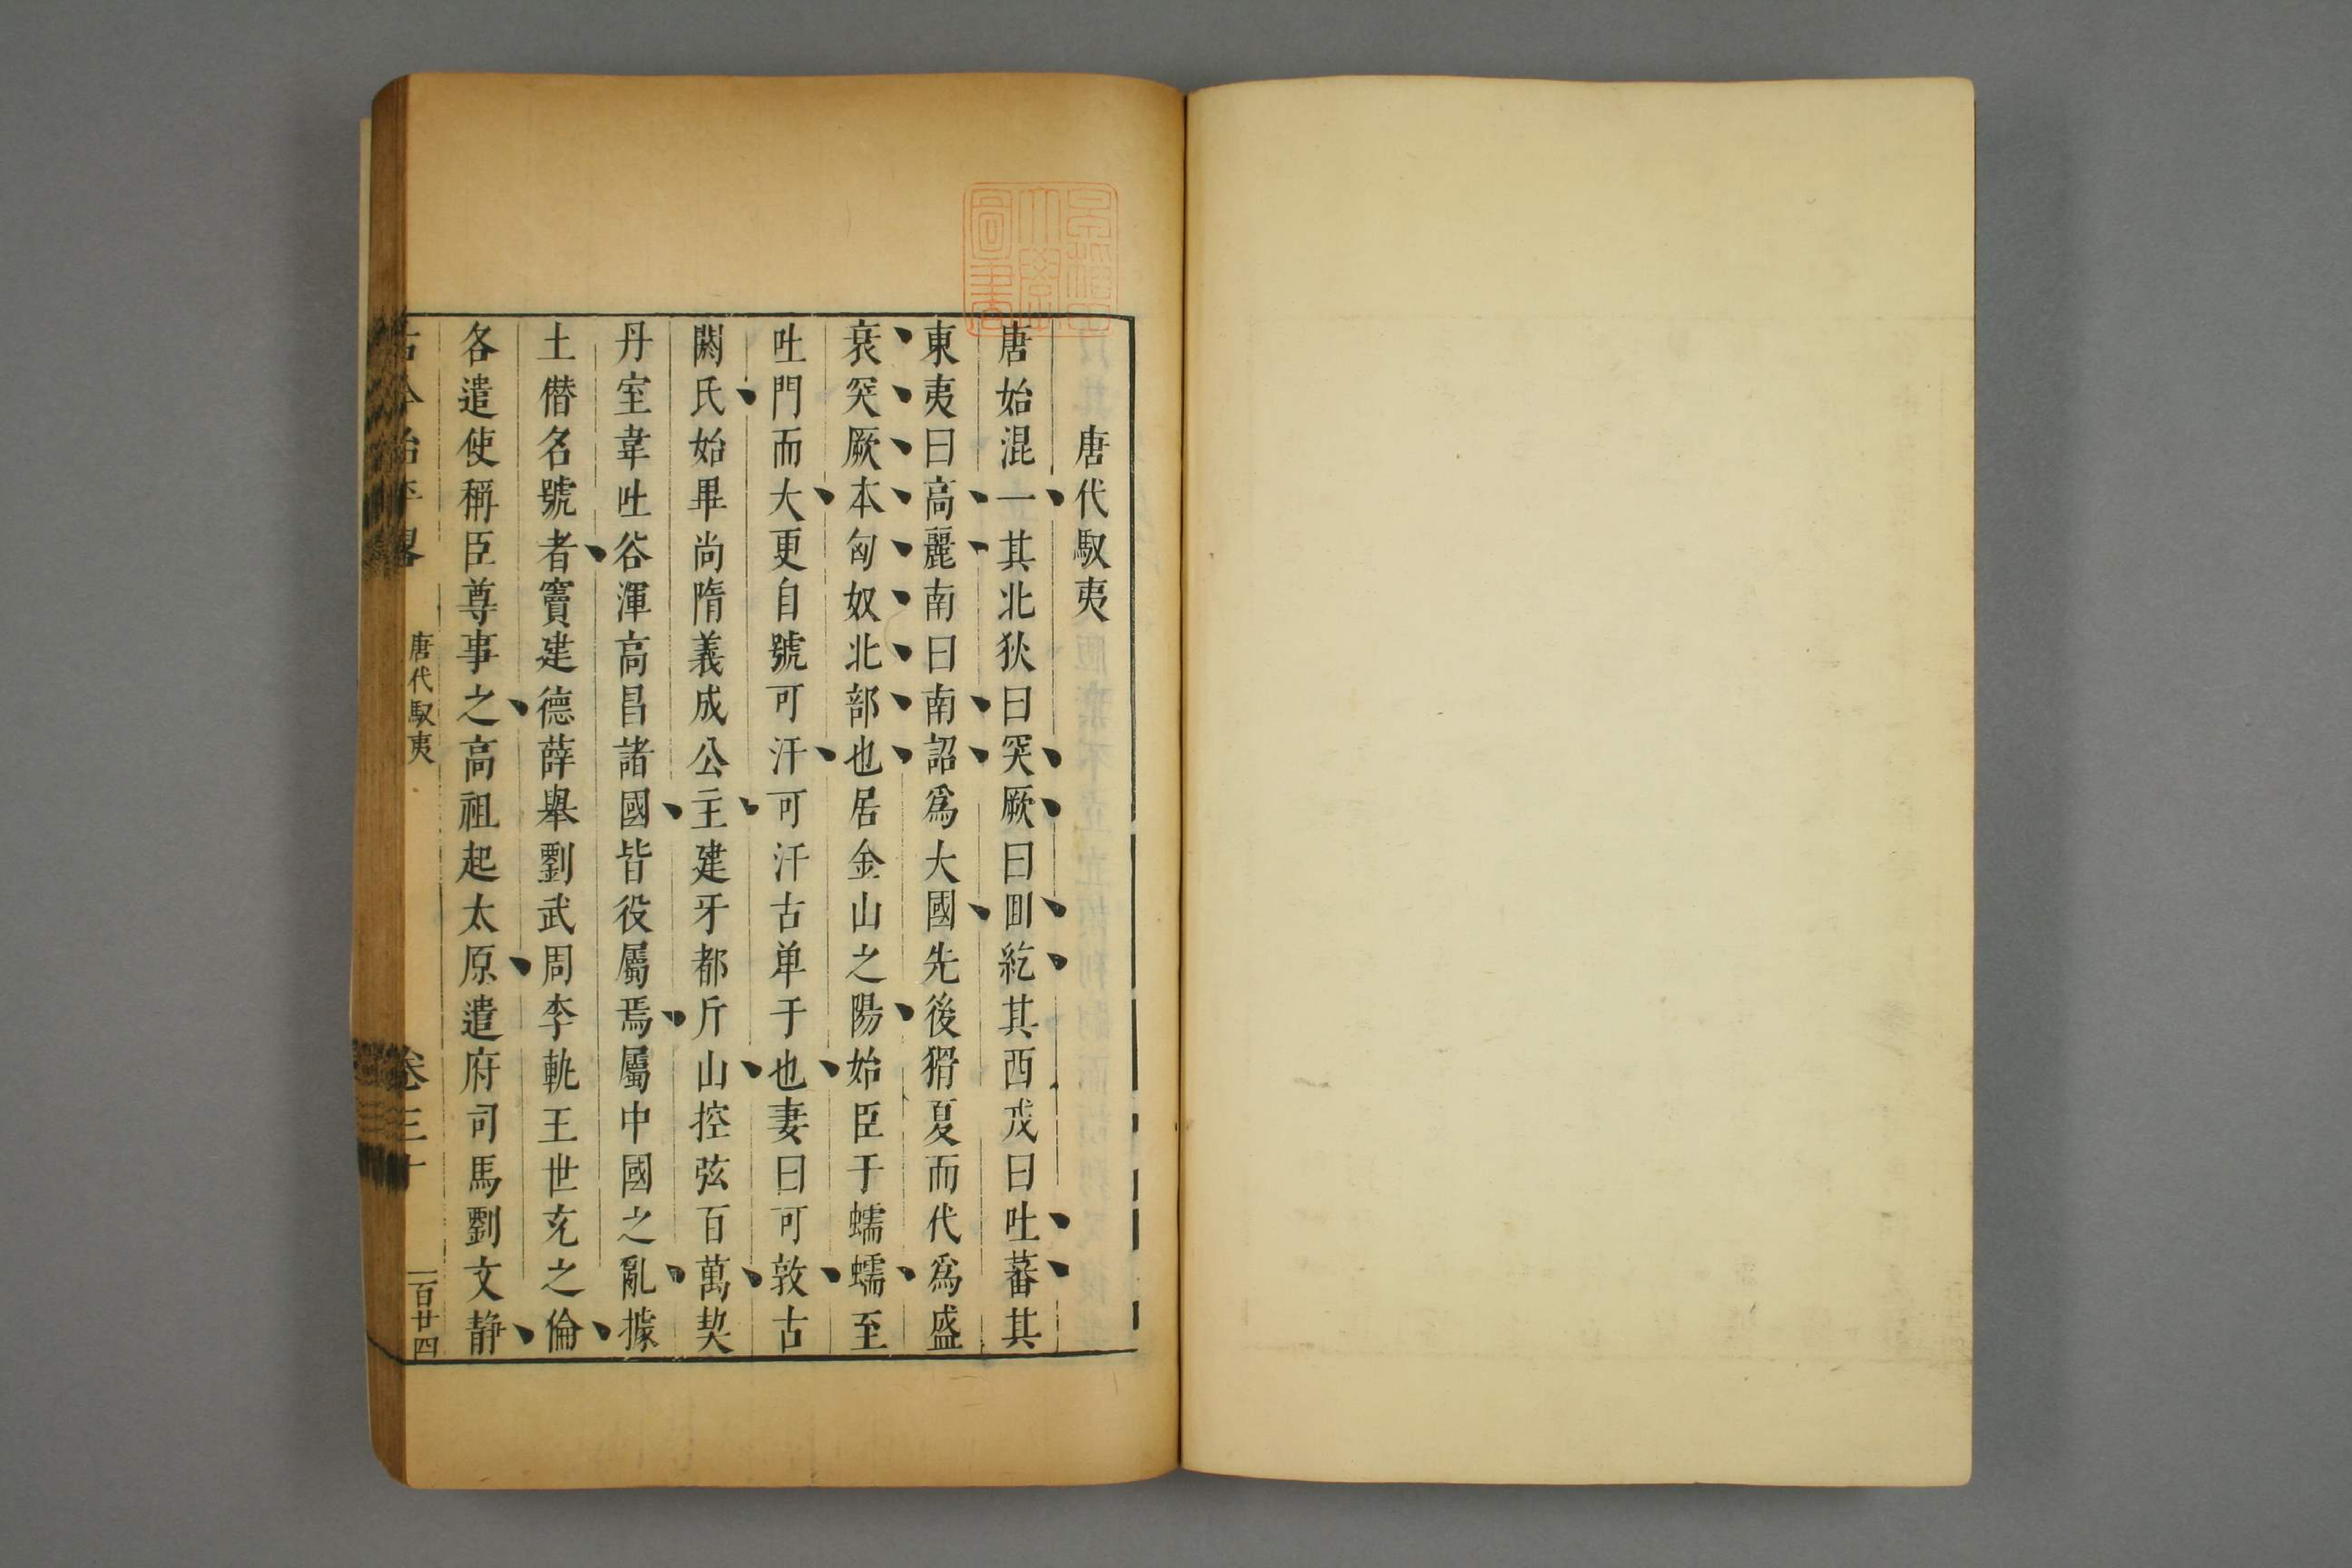 唐代馭夷
唐始混一其北狄曰突厥曰囬紇其西戎曰吐蕃其
東夷曰高麗南曰南詔爲大國先後猾夏而代爲盛
衰突厥本匈奴北部也居金山之陽始臣于蠕蠕至
吐門而大更自號可汗可汗古单于也妻曰可敦古
閼氏始畢尚隋義成公主建牙都斤山控弦百萬契
丹室韋吐谷渾高昌諸國皆役屬焉屬中國之亂據
土僭名號者竇建德薛舉劉武周李軌王世充之倫
各遣使稱臣尊事之高祖起太原遣府司馬劉文静
古今治平畧
唐代馭夷
卷三十
一百廿四